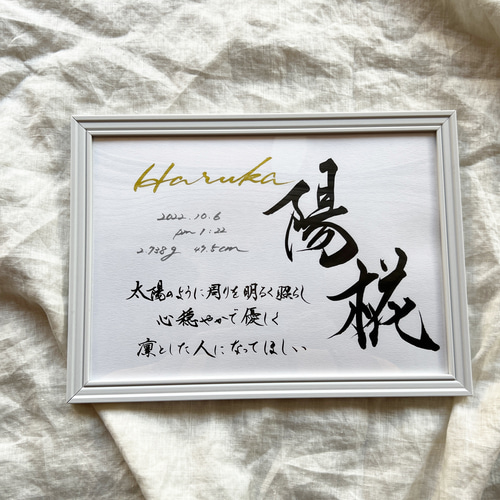 Haruka
陽椛
2022.10.6
pm 1:22
2.938g 49.5cm
太陽のように周りを明るく照らし
心穏やかで優しく
凛とした人になってほしい